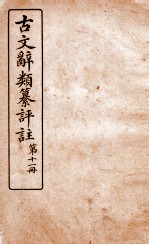 古文辭類纂評註 第十一冊